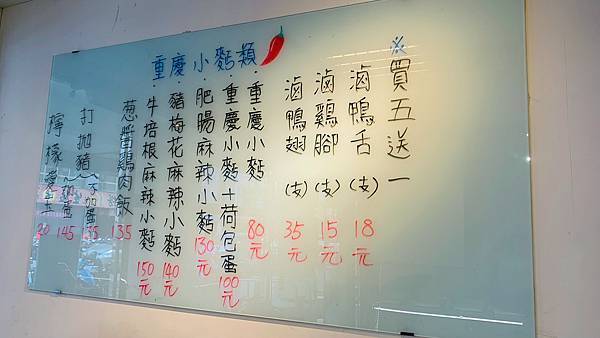 重慶小麵類
※買五送一
滷鴨舌(支) 18元
滷鷄腳(支) 15元
滷鴨翅(支) 35元
·重慶小麵 80元
·重慶小麵+荷包蛋 100元
·肥腸麻辣小麵 130元
·豬梅花麻辣小麵 140元
·牛培根麻辣小麵 150元
葱醬鷄肉飯 135
打拋豬
不加蛋 135
加蛋 145
檸檬愛玉 20